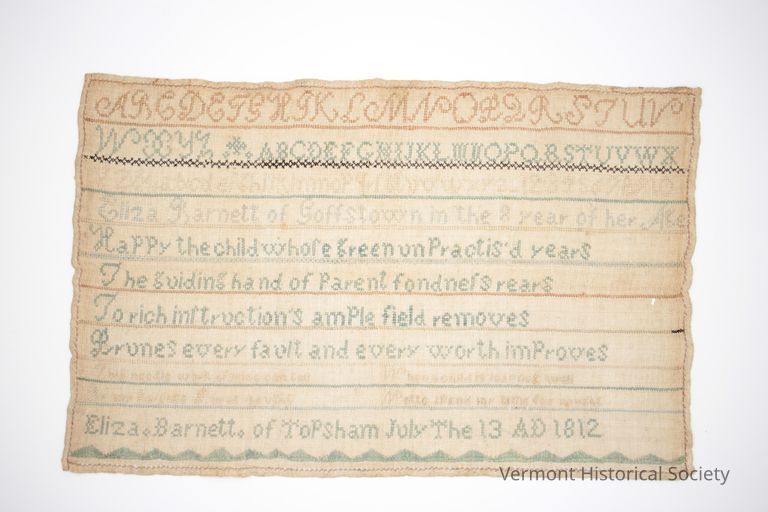 ABCDEFGHIKLMNOPQRSTUV
WXYZ ABCDEFGHIJKLMNOPQRSTUVWX
Eliza Barnett of Goffstown in the 8 year of her Age
Happy the child whoſe green unPractis'd years
The guiding hand of Parent fondneſs rears
To rich inſtruction's amPle field removes
Prunes every fault and every worth imProves
Eliza. Barnett. of ToPsham July The 13 AD 1812
Vermont Historical Society